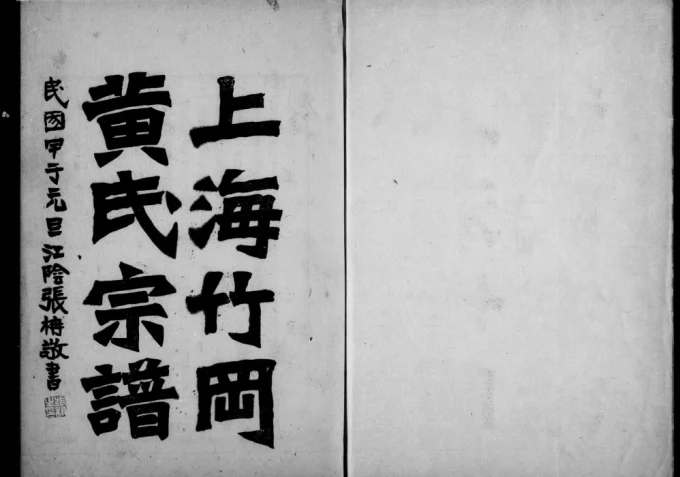 上海竹岡
黃氏宗譜
民國甲子元旦江陰張構敬書